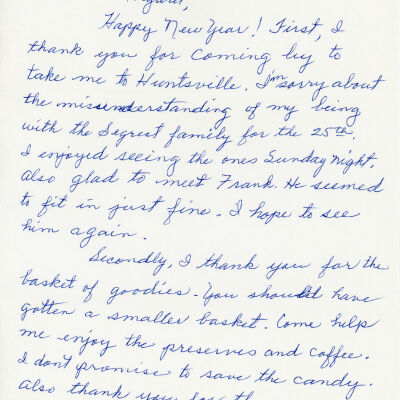 Happy New Year! First, I
thank you for coming by to
take me to Huntsville. I'm sorry about
the misunderstanding of my being
with the Segrest family for the 25th.
I enjoyed seeing the ones Sunday night.
Also glad to meet Frank. He seemed
to fit in just fine. I hope to see
him again.
Secondly, I thank you for the
basket of goodies. You should have
gotten a smaller basket. Come help
me enjoy the preserves and coffee.
I don't promise to save the candy.
Also thank you for